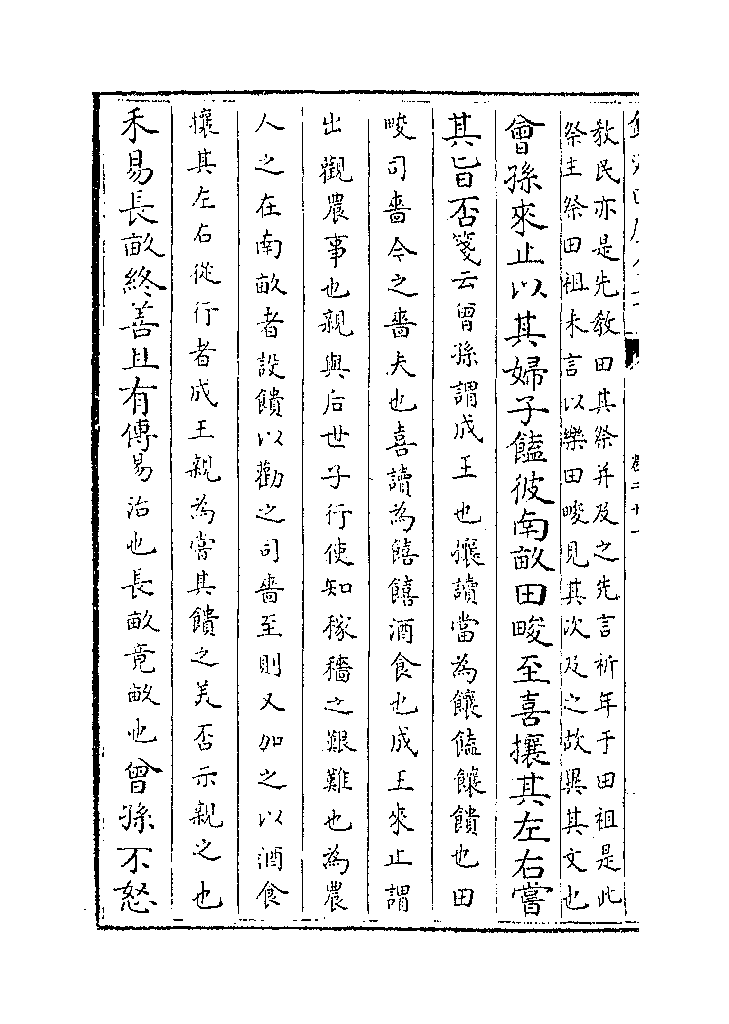 教民亦是先教田其祭并及之先言祈年于田祖是此
祭主祭田祖未言以樂田畯見其次及之故異其文也
曾孫來止以其婦子饁彼南畝田畯至喜攘其左右嘗
其旨否箋云曾孫謂成王也攘讀當為饟饁饟饋也田
畯司嗇今之嗇夫也喜讀為饎饎酒食也成王來止謂
出觀農事也親與后世子行使知稼穡之艱難也為農
人之在南畝者設饋以勸之司嗇至則又加之以酒食
攘其左右從行者成王親為嘗其饋之美否示親之也
禾易長畝終善且有傳易治也長畝竟畝也曾孫不怒